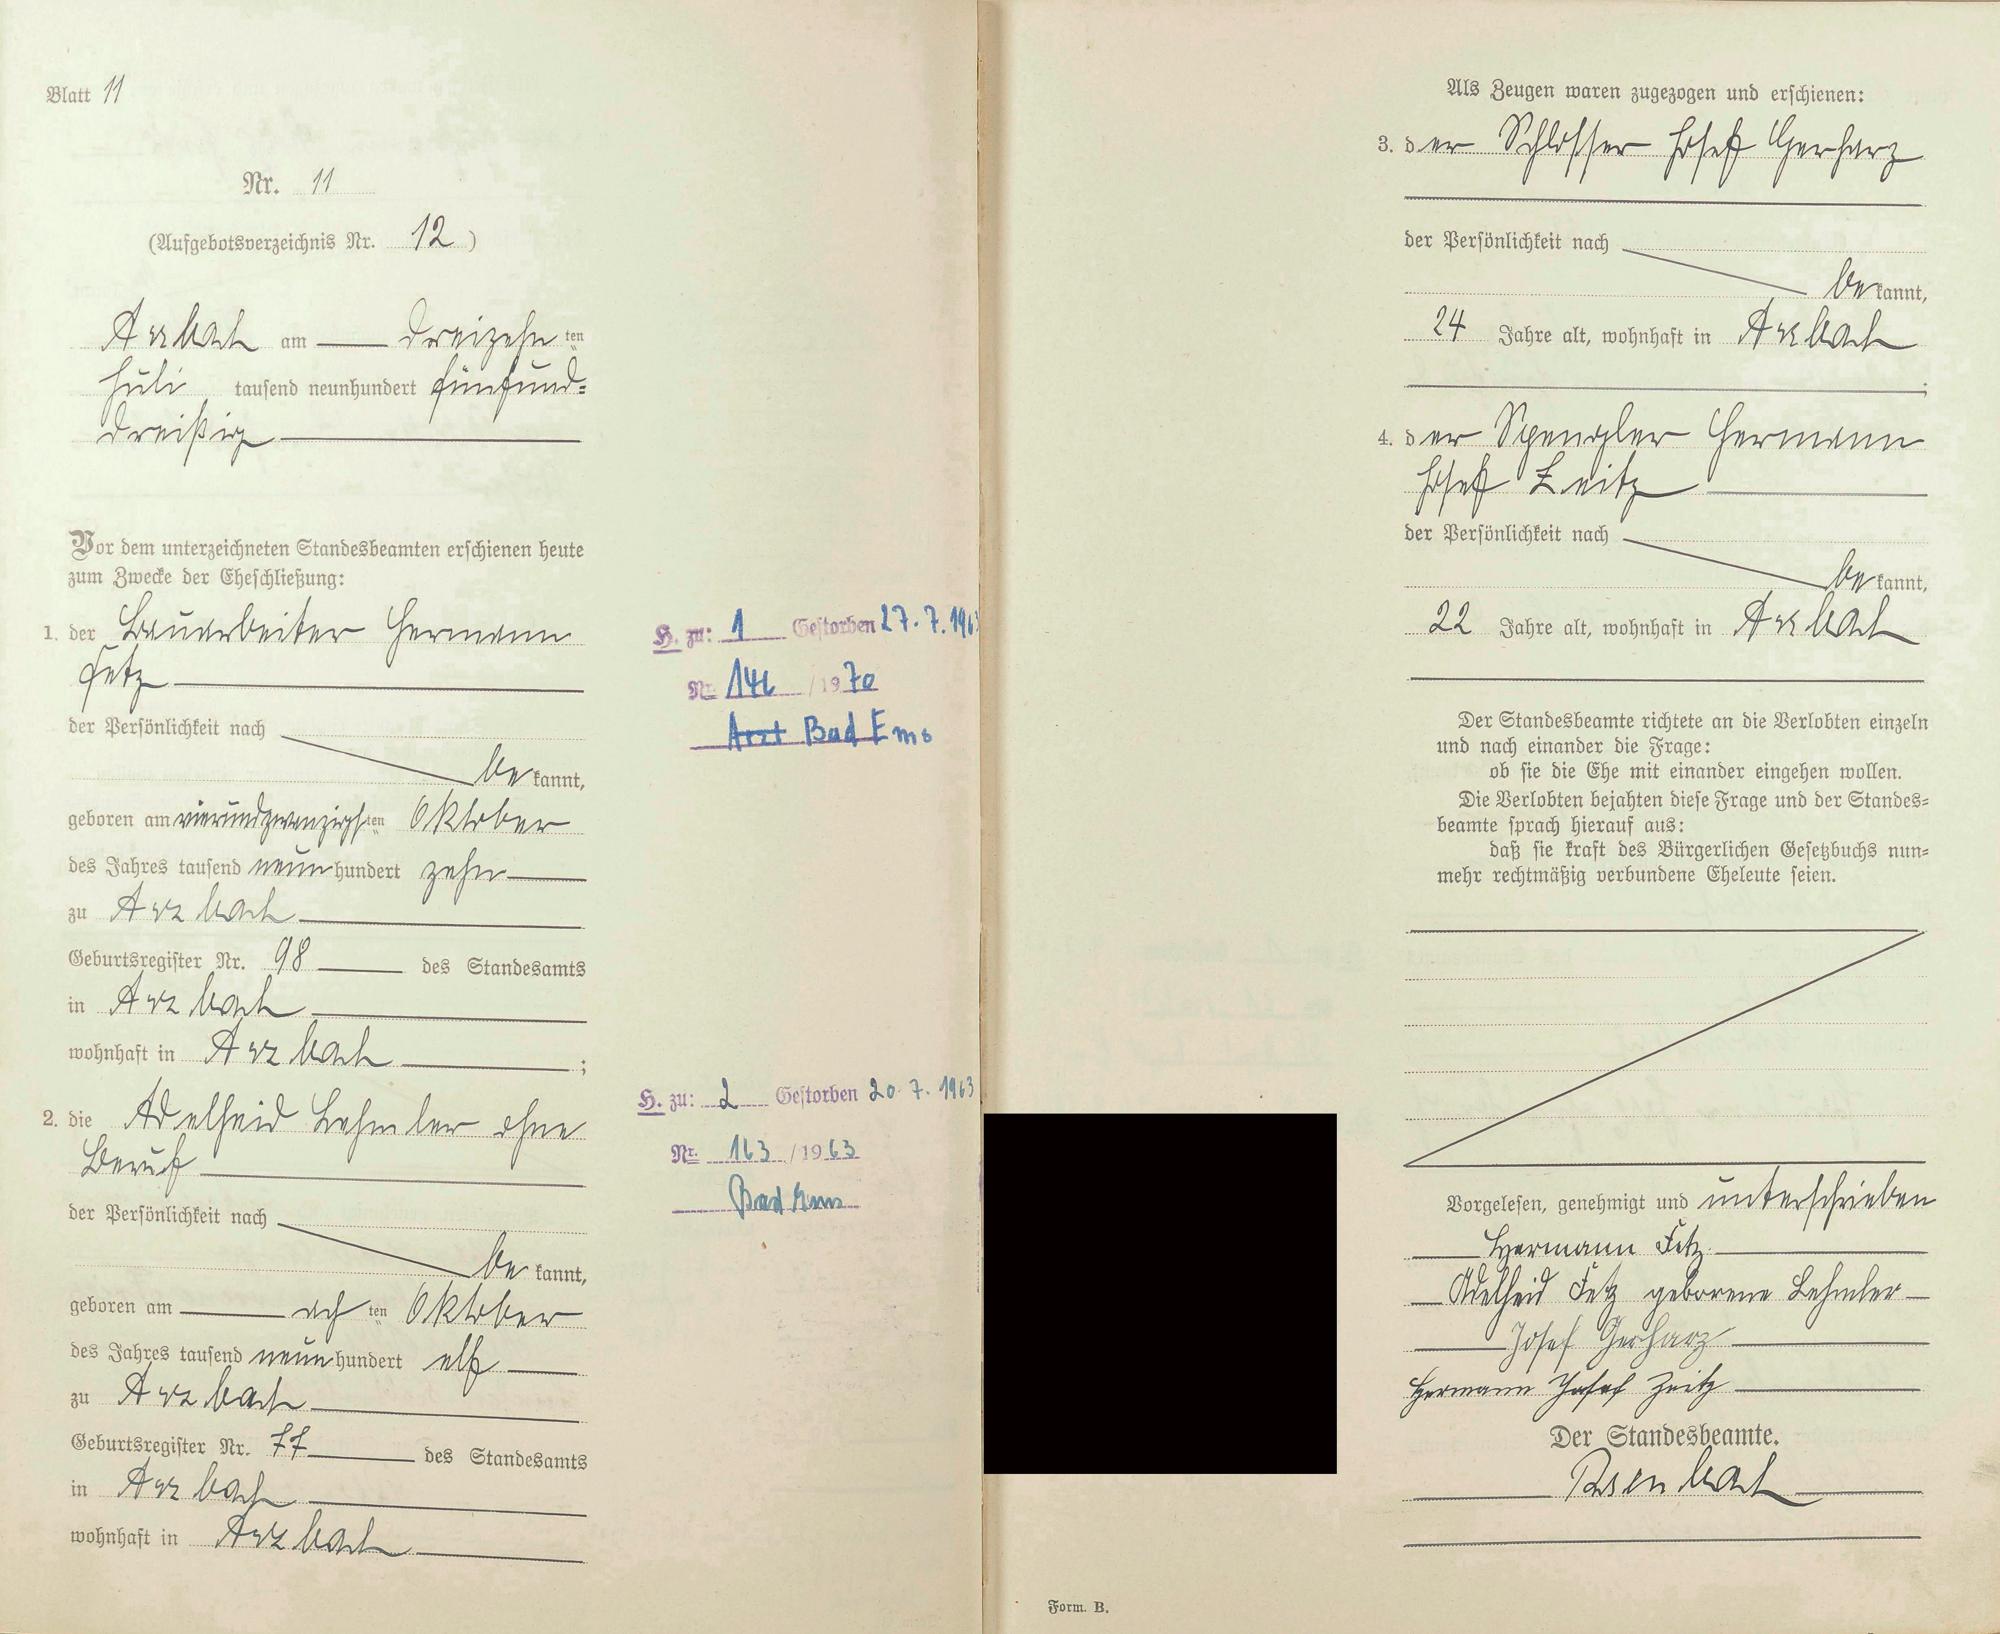 Blatt 11
Nr. 11
(Aufgebotsverzeichnis Nr. 12)
Arzbach am dreizehnten
Juli tausend neunhundert fünfund-
dreißig
Vor dem unterzeichneten Standesbeamten erschienen heute
zum Zwecke der Eheschließung:
1. der Bauarbeiter Hermann
Fetz
der Persönlichkeit nach
bekannt,
geboren am vierundzwanzigsten Oktober
des Jahres tausend neunhundert zehn
zu Arzbach
Geburtsregister Nr. 98 des Standesamts
in Arzbach
wohnhaft in Arzbach ;
2. die Adelheid Lehmler ohne
Beruf
der Persönlichkeit nach
bekannt,
geboren am achten Oktober
des Jahres tausend neunhundert elf
zu Arzbach
Geburtsregister Nr. 77 des Standesamts
in Arzbach
wohnhaft in Arzbach
H. zu: 1 Gestorben 27.7.
Nr. /1970
Bad Ems
H. zu: 2 Gestorben 20.7.1963
Nr. 163/1963
Bad Ems
Als Zeugen waren zugezogen und erschienen:
3. der Schlosser Josef Gerharz
der Persönlichkeit nach
bekannt,
24 Jahre alt, wohnhaft in Arzbach
;
4. der Spengler Hermann
Josef Zeitz
der Persönlichkeit nach
bekannt,
22 Jahre alt, wohnhaft in Arzbach
Der Standesbeamte richtete an die Verlobten einzeln
und nach einander die Frage:
ob sie die Ehe mit einander eingehen wollen.
Die Verlobten bejahten diese Frage und der Standes-
beamte sprach hierauf aus:
daß sie kraft des Bürgerlichen Gesetzbuchs nun-
mehr rechtmäßig verbundene Eheleute seien.
Vorgelesen, genehmigt und unterschrieben
Hermann Fetz
Adelheid Fetz geborene Lehmler
Josef Gerharz
Hermann Josef Zeitz
Der Standesbeamte.
Form. B.